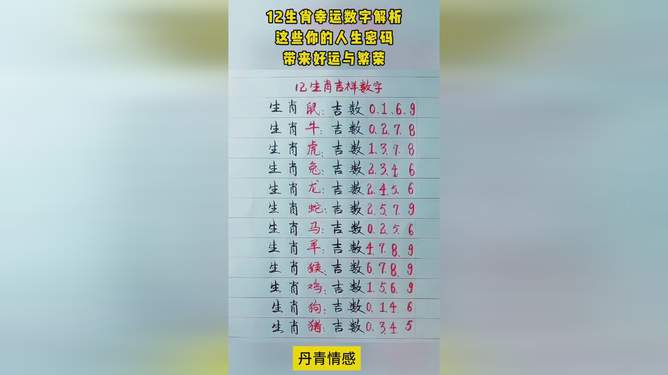 12生肖幸运数字解析
这些你的人生密码
带来好运与繁荣
12生肖吉祥数字
生肖鼠:吉数0.1.6.9
生肖牛:吉数0.2.7.8
生肖虎:吉数1.3.7.8
生肖兔:吉数2.3.4 6
生肖龙:吉数2.4.5.6
生肖蛇:吉数2.5.7.9
生肖马:吉数0.2.5.6
生肖羊:吉数4.7.8.9
生肖猴:吉数6.7.8.9
生肖鸡:吉数1.5.6.9
生肖狗:吉数0.1.4 6
生肖猪:吉数0.3.4 5
丹青情感